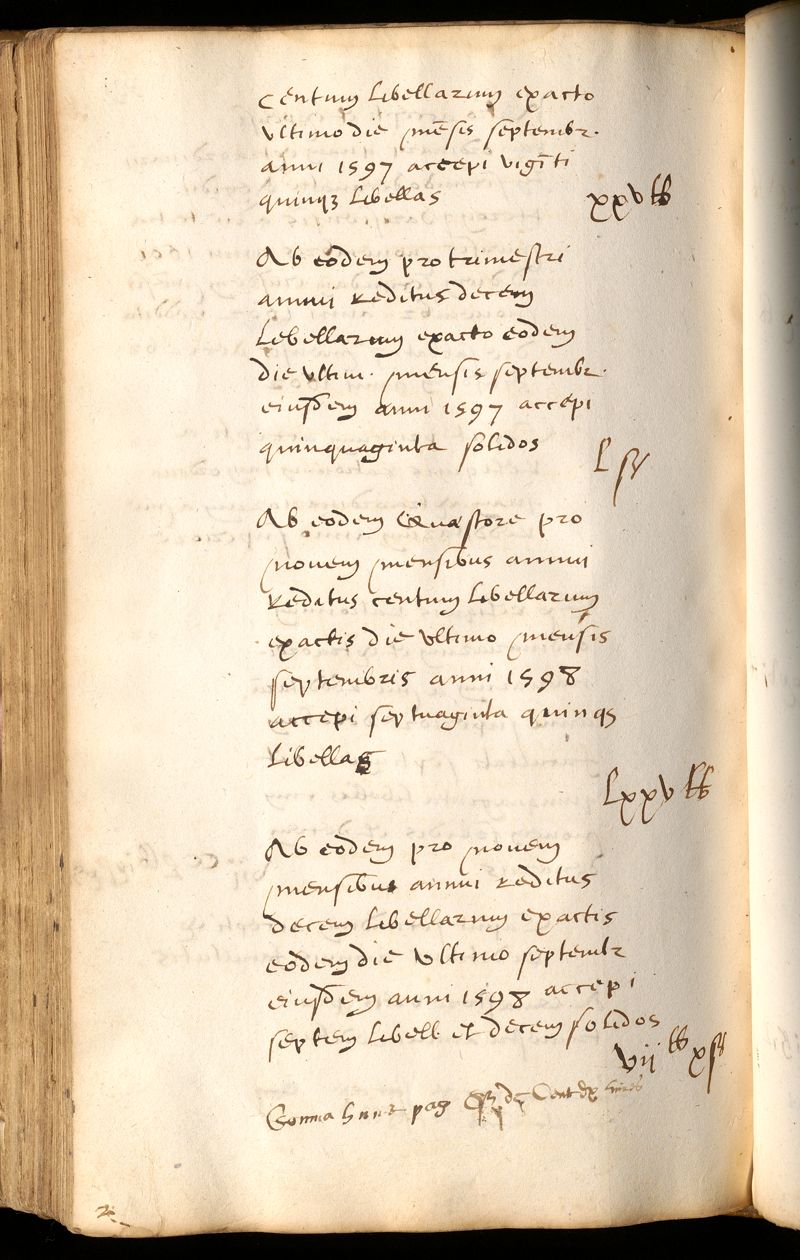 centum libellarum exacto
ultimo die mēsis septembr.
anni 1597 accepi vigīti
quinqȝ libellas
xxv łł
Ab eodem pro trimestri
annui reditus decem
Lebellarum exacto eodem
die ultim. mensis septembr.
eiusdem anni 1597 accepi
quinquaginta solidos
L ſ
Ab eodem Quæstore pro
novem mensibus annui
reditus centum libellarum
exactis die ultimo mensis
septembris anni 1598
accepi septuaginta quinqȝ
libellas
Lxxv łł
Ab eodem pro novem
mensibus annui reditus
decem libellarum exactis
eodem die ultimo septembr
eiusdem anni 1598 accepi
septem libell et decem solidos
vij łł x ſ
Somma
2